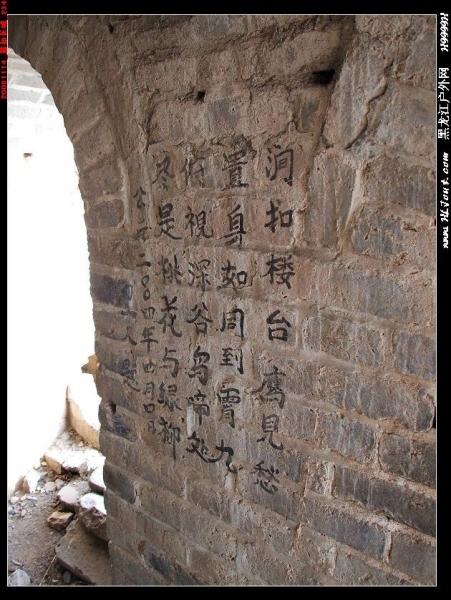 涧扣楼台鹰见愁
置身如周到霄九
俯视深谷鸟啼处
尽是桃花与绿柳
公元二00四年四月四日
人题
黑龙江户外网
www.HLJout.com